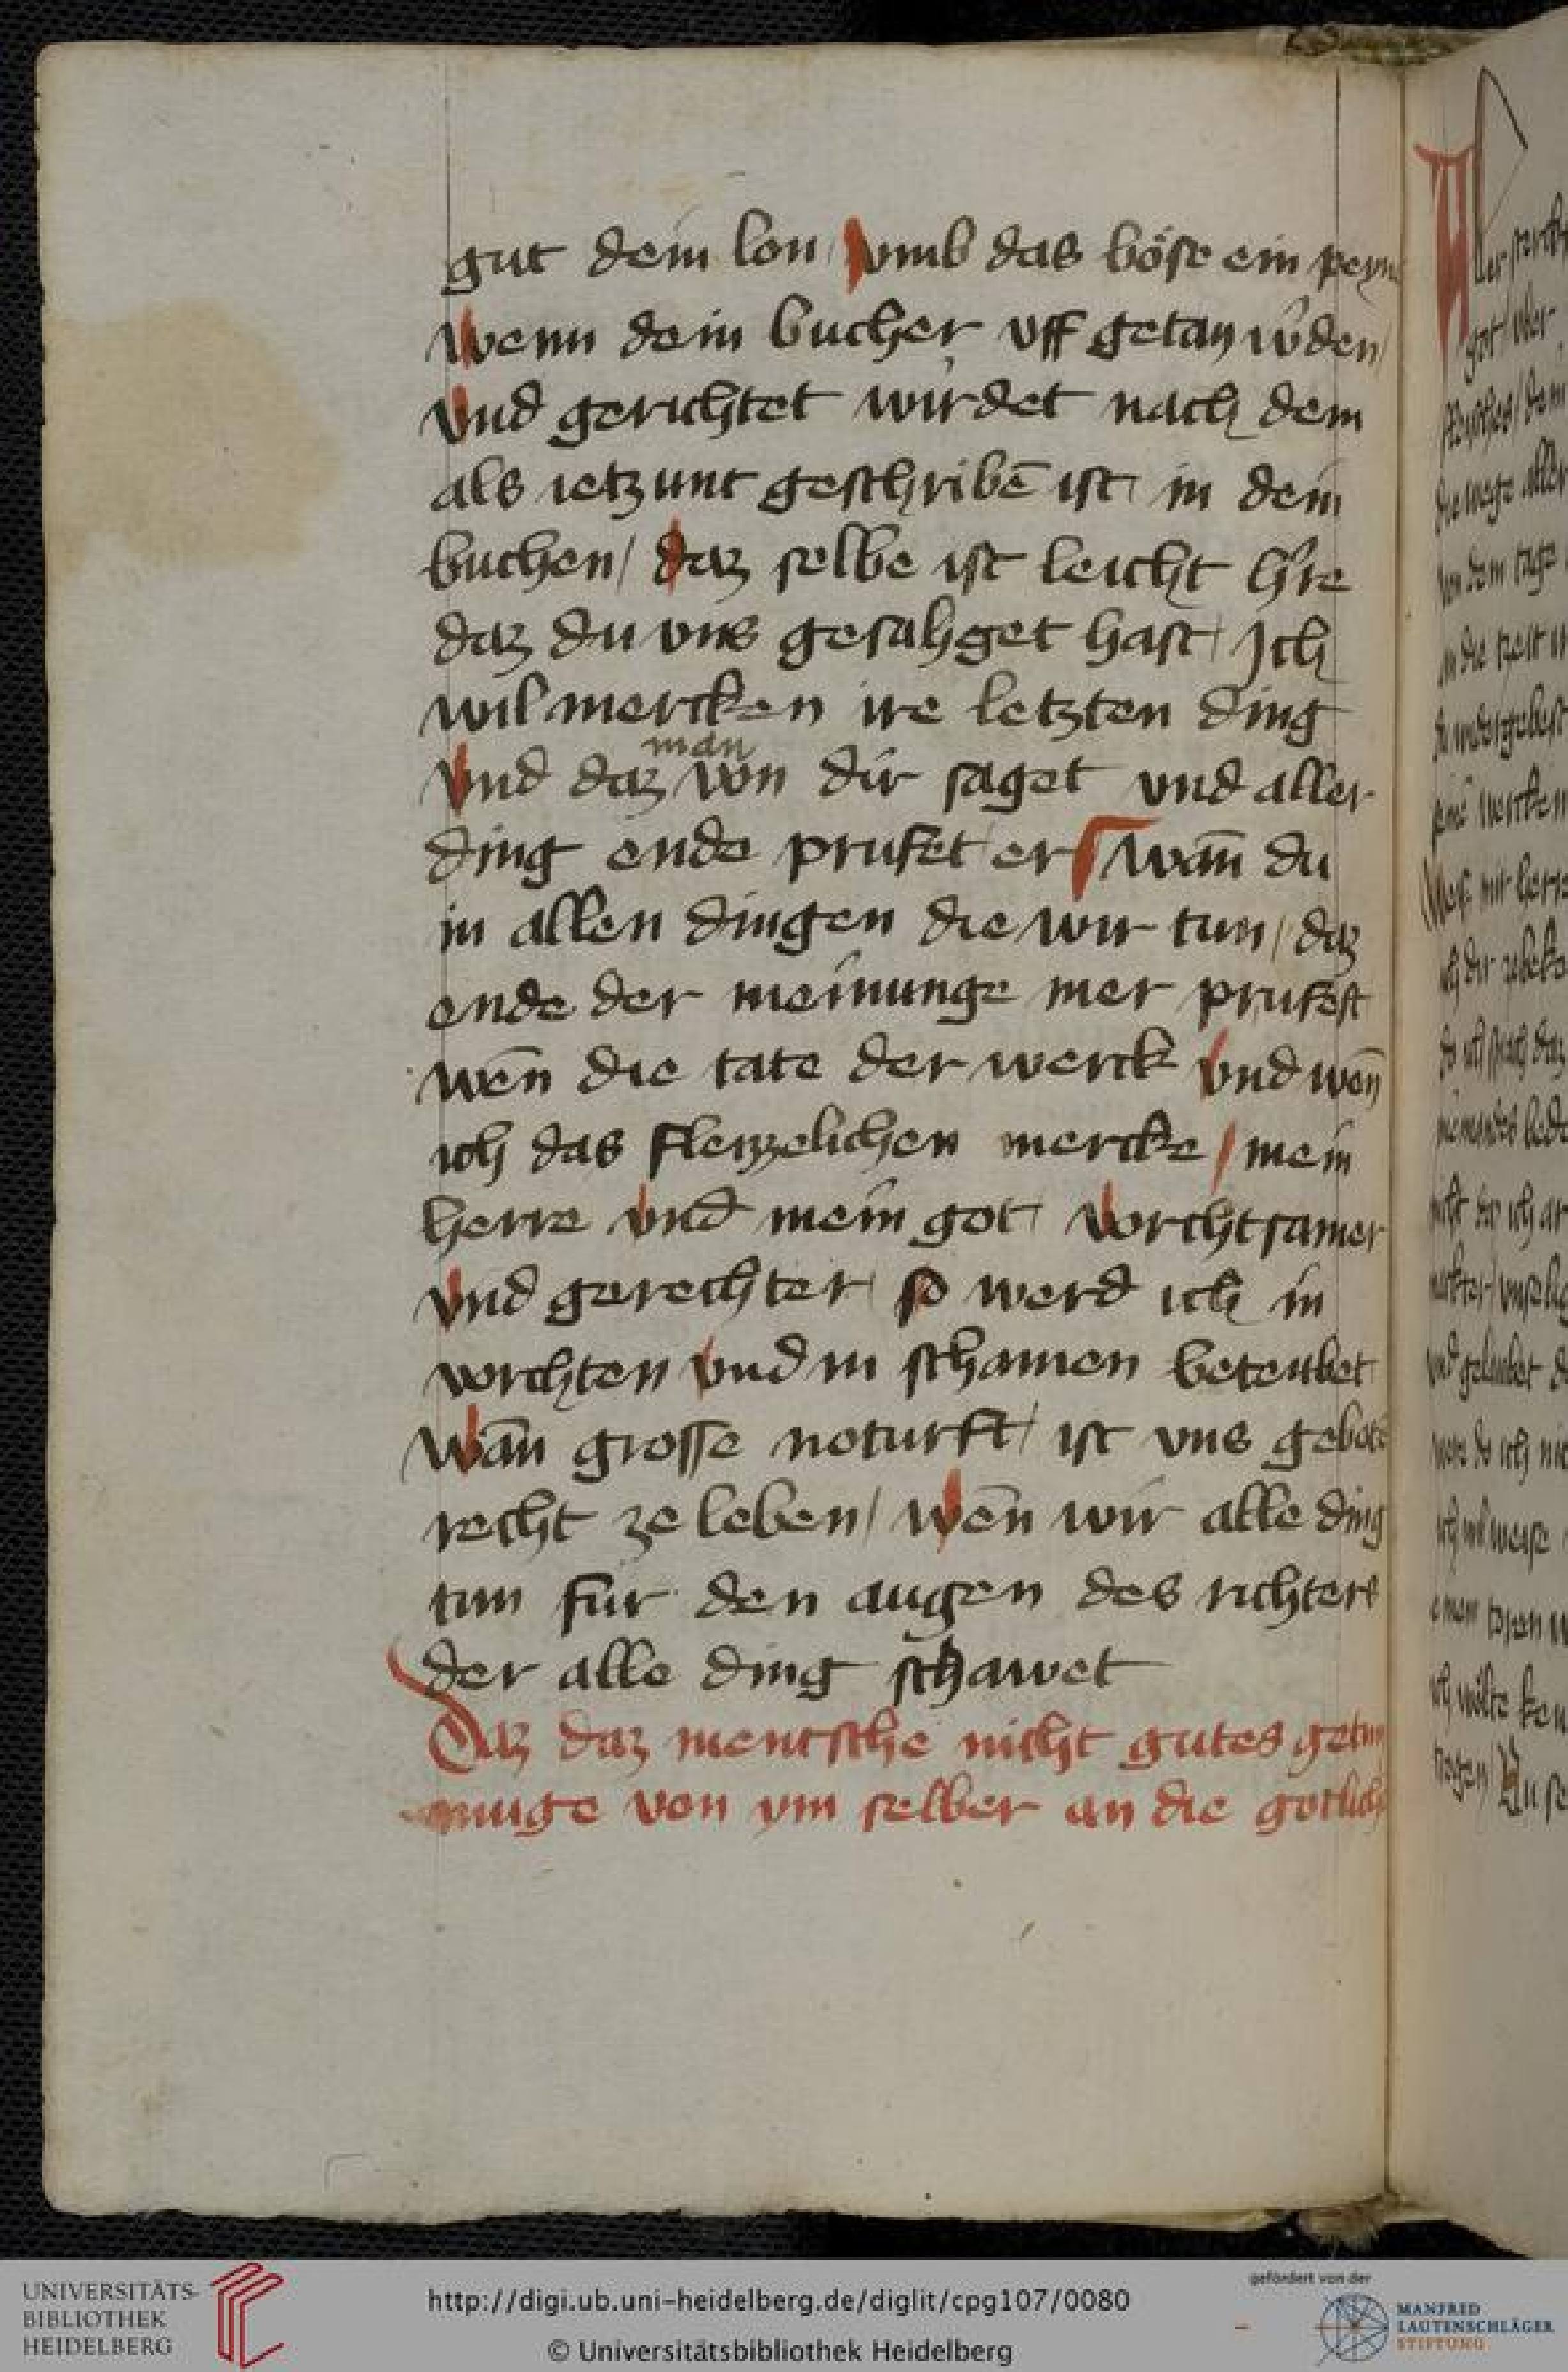 gut dein lon / vmb das böse ein peyn
Wenn dein bucher vff getan w̉den /
Vnd gerichtet wirdet nach dem
als ietzunt geschribē ist / in dein
buchen / daz selbe ist leicht h̉re
daz du vns gesahget hast / Ich
wil mercken ire letzten ding
man
Vnd daz von dir saget vnd aller
ding ende prufet er Wañ du
in allen dingen die wir tun / daz
ende der meinunge mer prufest
wen̄ die tate der werck vnd wen̄
ich das fleyzelichen mercke / mein
herre vnd mein got / vorchtsamer
Vnd gerechter / so werd ich in
vorchten vnd in schamen beteubet /
Wān grosse noturft / ist vns gebotē
recht ze leben / wen̄ wir alle ding
tun fur den augen des richters
der alle ding schawet
Daz daz mentsche nicht gutes getun
muge von ym selber an die gotlich
UNIVERSITÄTS-
BIBLIOTHEK
HEIDELBERG
http://digi.ub.uni-heidelberg.de/diglit/cpg107/0080
© Universitätsbibliothek Heidelberg
gefördert von der
MANFRED
LAUTENSCHLÄGER
STIFTUNG